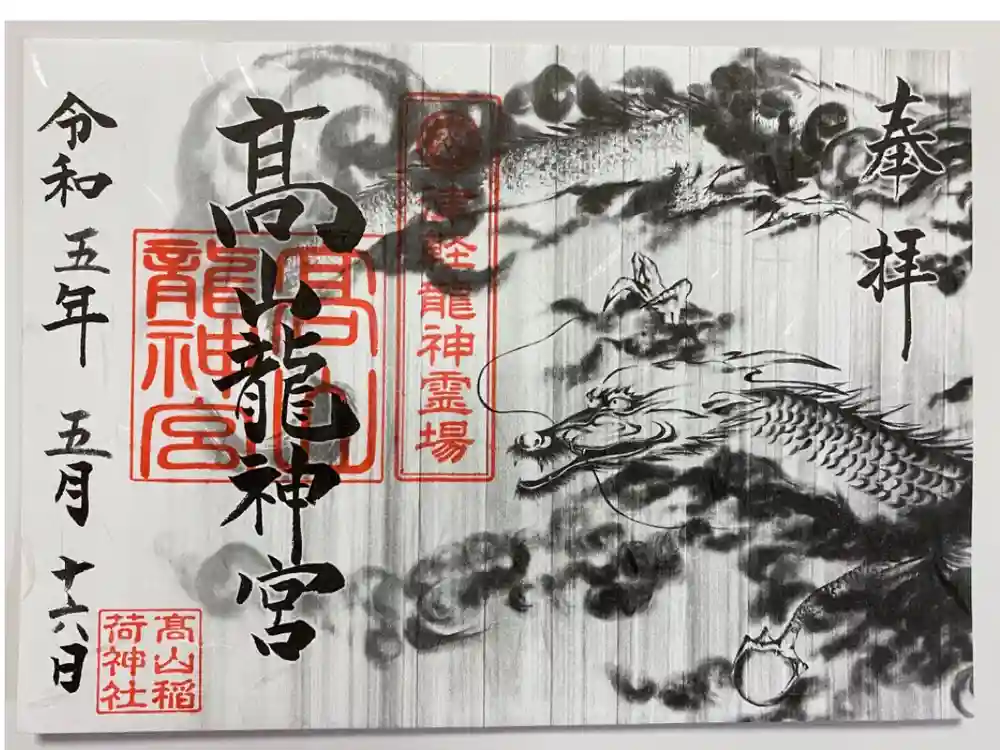 奉拝
津軽龍神霊場
髙山龍神宮
高山龍神宮
令和五年 五月 十六日
髙山稲荷神社